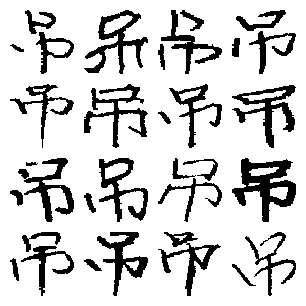 吊吊吊吊
吊吊吊吊
吊吊吊吊
吊吊吊吊